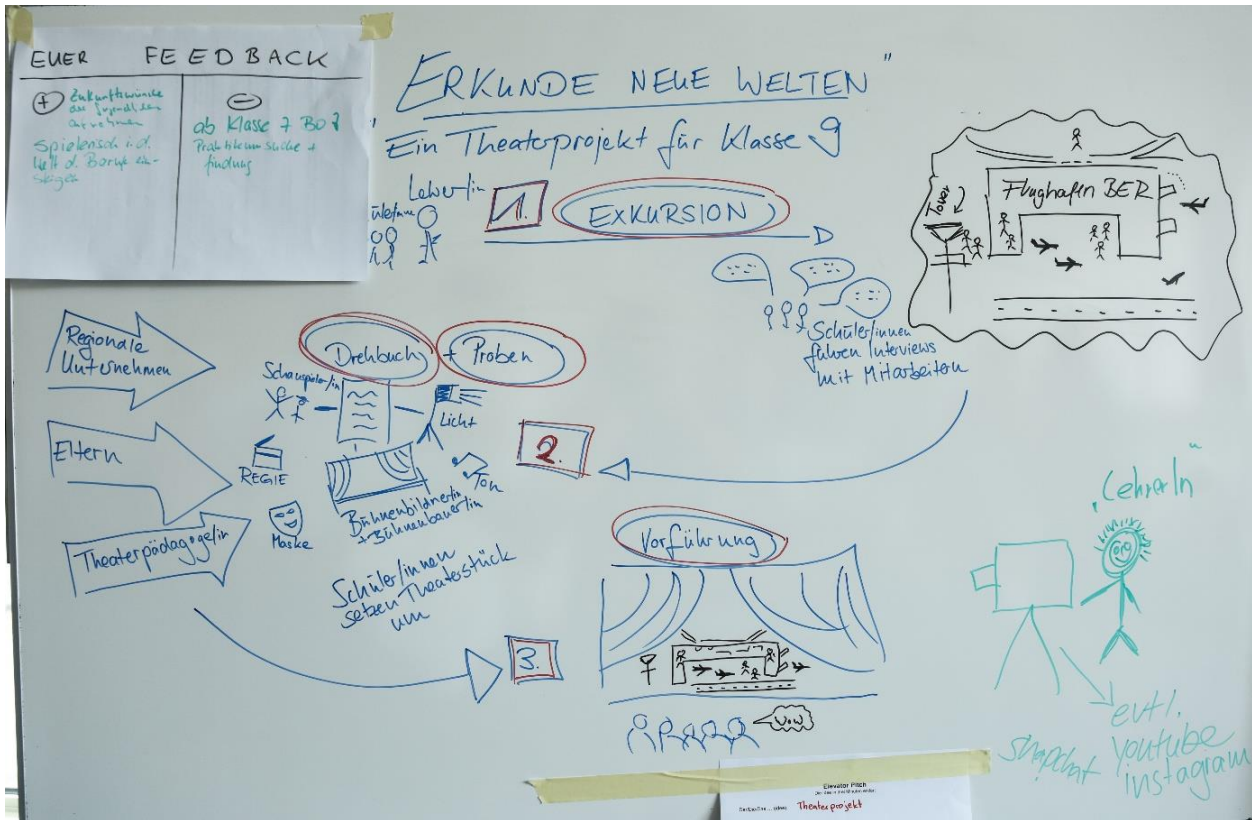 EUER FEEDBACK
+
Zukunftswünsche
der Jugendlichen
aufnehmen
Spielerisch i.d.
Welt d. Berufe ein-
steigen
-
ab Klasse 7 BO?
Praktikumsuche +
findung
"ERKUNDE NEUE WELTEN"
Ein Theaterprojekt für Klasse 9
Lehrer/in
1. EXKURSION
Flughafen BER
Tower
Schüler/innen
führen Interviews
mit Mitarbeitern
Regionale
Unternehmen
Eltern
Theaterpädagoge/in
Drehbuch + Proben
Schauspieler/in
Licht
REGIE
Ton
Maske
Bühnenbildner/in
+ Bühnenbauer/in
Schüler/innen
setzen Theaterstück
um
2.
3.
Vorführung
WOW
"LehrerIn"
evtl.
snapchat youtube
instagram
Elevator Pitch
Theaterprojekt